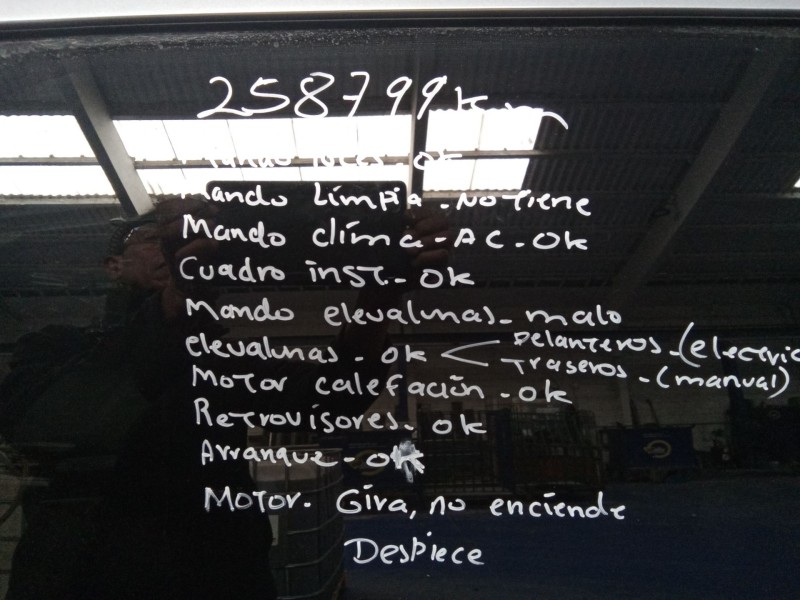 258799 km
Mando luces - ok
Mando Limpia - No Tiene
Mando clima - AC - Ok
Cuadro inst. - Ok
Mando elevalunas - malo
elevalunas - ok < Delanteros - (electric
Traseros - (manual)
Motor calefación - ok
Retrovisores - ok
Arranque - ok
Motor. Gira, no enciende
Despiece